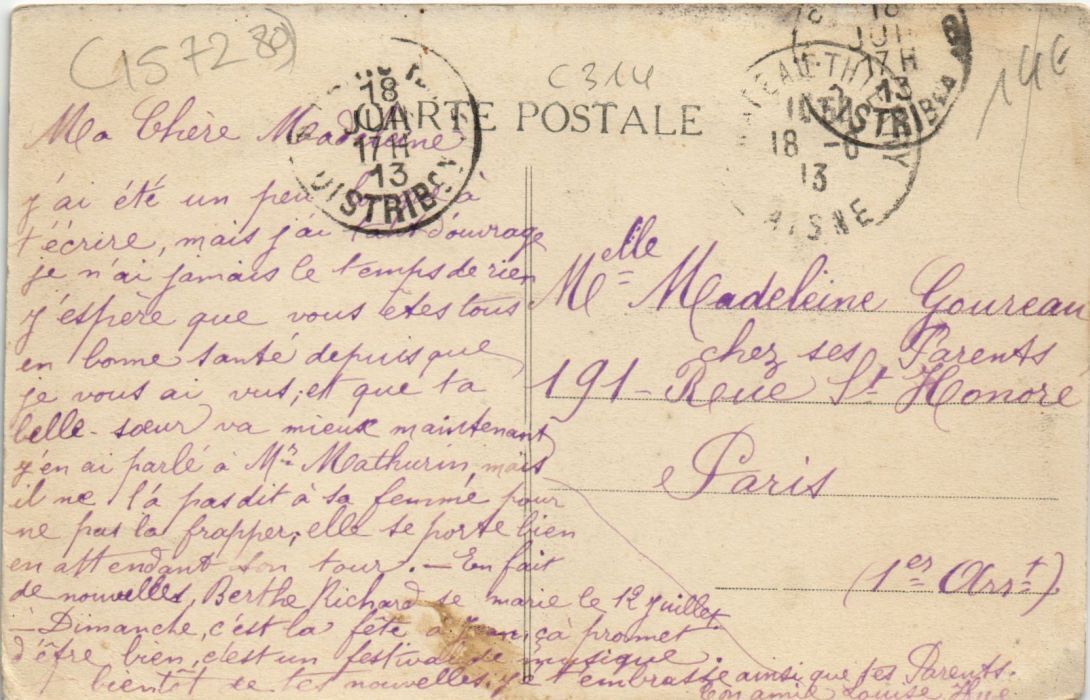 C157280
C314
14€
CARTE POSTALE
18
JUIN
17H
13
DISTRIB
18
17H
13
DISTRIB
18 -6
13
AISNE
Ma Chère Madeleine
j'ai été un peu à
t'écrire, mais j'ai tant d'ouvrage
je n'ai jamais le temps de rien
j'espère que vous êtes tous
en bonne santé depuis que
je vous ai vus, et que ta
belle-sœur va mieux maintenant
j'en ai parlé à Mr Mathurin, mais
il ne l'a pas dit à sa femme pour
ne pas la frapper, elle se porte bien
en attendant son tour. — En fait
de nouvelles, Berthe Richard se marie le 12 juillet.
— Dimanche, c'est la fête à çà promet
d'être bien, c'est un festival de musique.
bientôt de tes nouvelles, je t'embrasse ainsi que tes Parents.
Ton amie Louise
Melle Madeleine Goureau
chez ses Parents
191 - Rue St Honore
Paris
(1er Arrt)